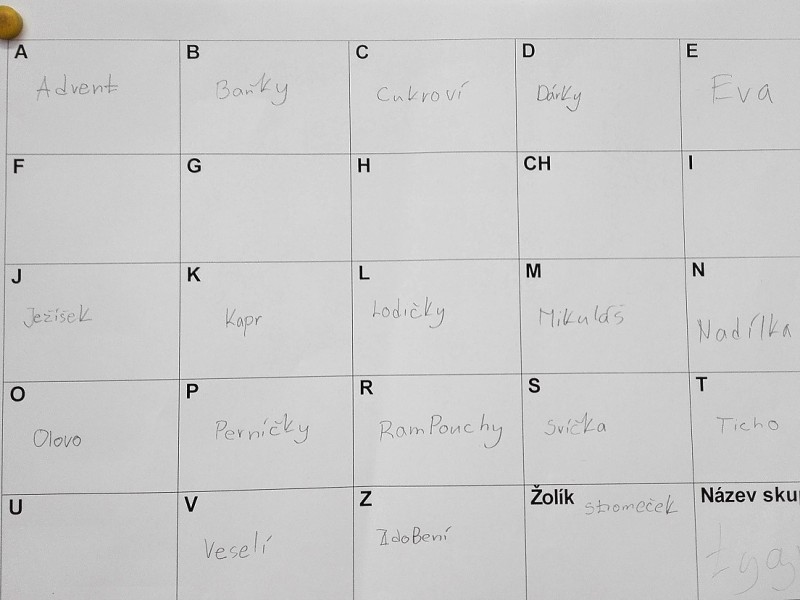 A B C D E
Advent Baňky Cukroví Dárky Eva
F G H CH I
J K L M N
Ježíšek Kapr Lodičky Mikuláš Nadílka
O P R S T
Olovo Perníčky RamPouchy Svíčka Ticho
U V Z Žolík Stromeček Název sku
Veselí ZdoBení